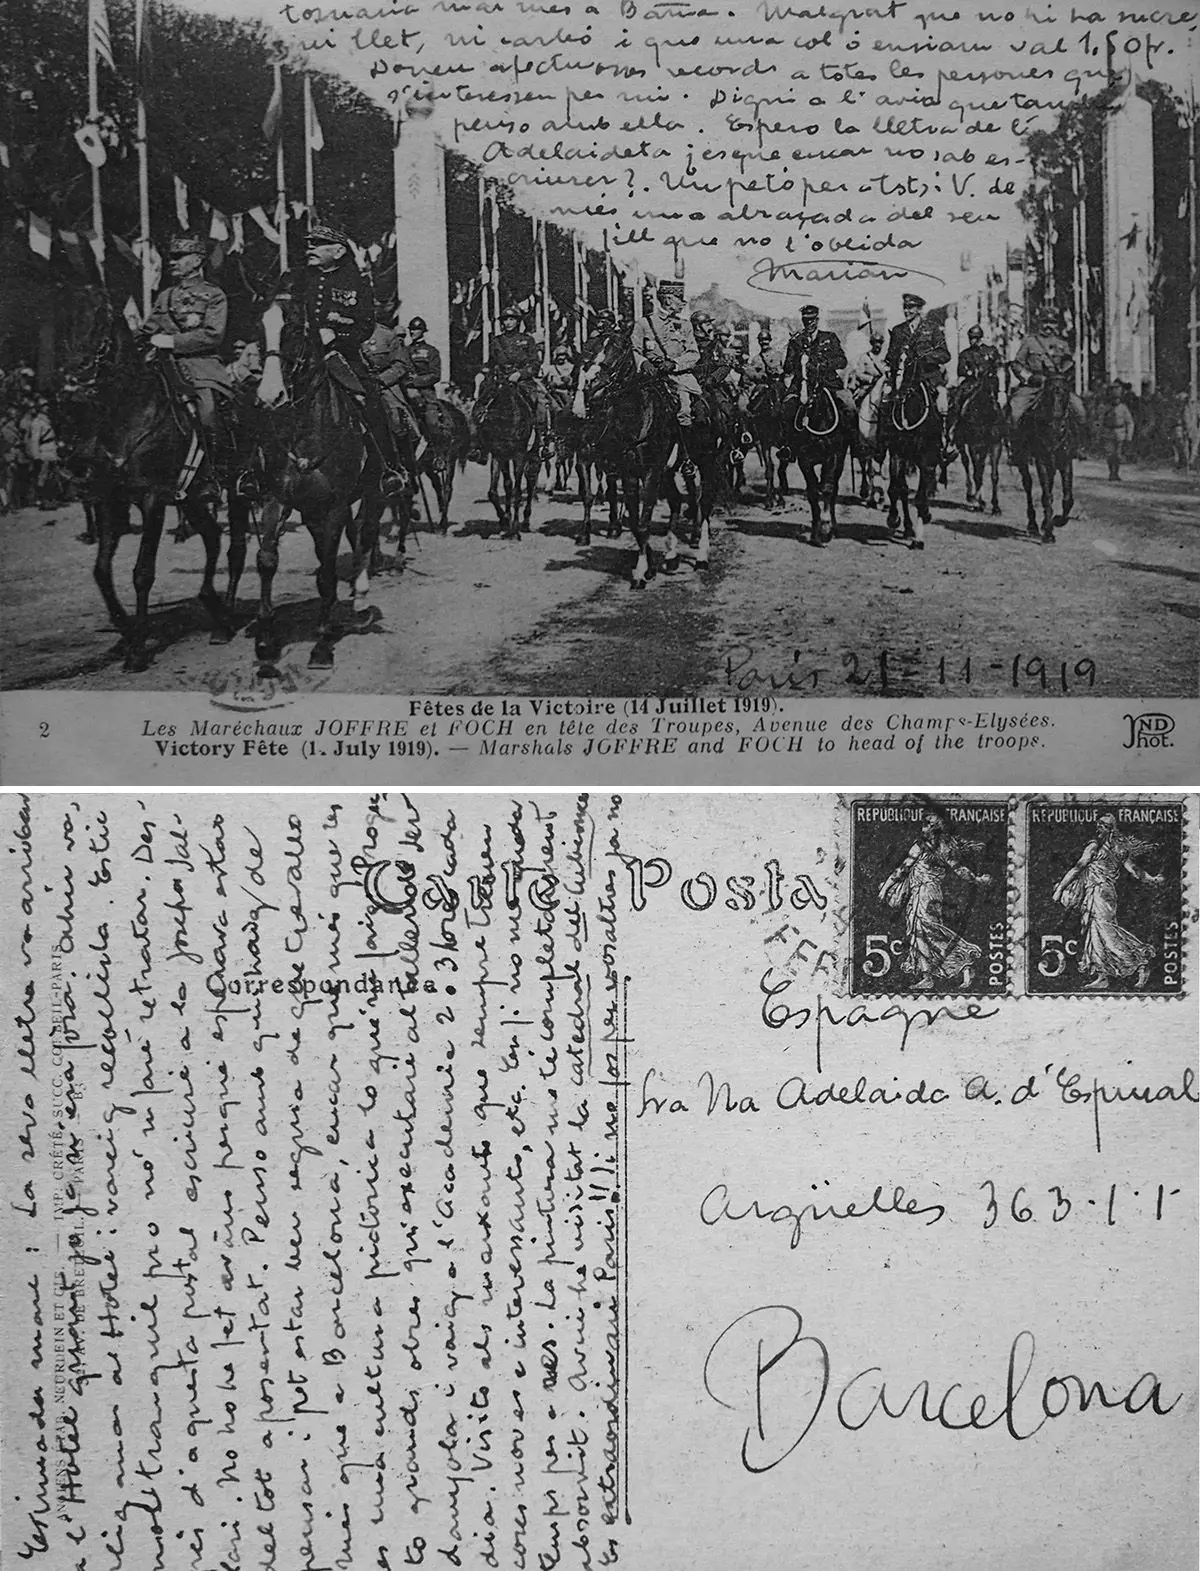 tornaria mai més a Barna. Malgrat que no hi ha sucre,
ni llet, ni carbó i que una col ó enciam val 1.50 fr.
Doneu afectuosos records a totes les persones que
s'interessen per mi. Digui a l'avia que també
penso amb ella. Espero la lletra de l'
Adelaideta ¿es que encar no sab es-
criurer?. Un petó per a tots i V. de
més una abraçada del seu
fill que no l'oblida
Marian
París 21-11-1919
Fêtes de la Victoire (14 Juillet 1919).
2 Les Maréchaux JOFFRE et FOCH en tête des Troupes, Avenue des Champs-Elysées.
Victory Fête (1. July 1919). — Marshals JOFFRE and FOCH to head of the troops.
ND Phot.
Carte Postale
Correspondance
ANCIENS ETAB. NEURDEIN ET CIE — IMP. CRÉTÉ, SUCC. CORBEIL-PARIS
REPUBLIQUE FRANÇAISE
5c POSTES
REPUBLIQUE FRANÇAISE
5c POSTES
Espagne
Sra Na Adelaida A. d'Espinal
Argüelles 363-1-1
Barcelona
Estimada mare: La seva lletra va arribar
a l'Hotel quant ja no hi era pro. Ahir va,
anar al Hotel i vareig recollirla. Estic
molt tranquil pro no m faré retratar. Des-
prés d'aquesta postal escriuré a la Josepa Jal-
lari. No ho he fet avans perque esperava estar
del tot aposentat. Penso amb
pensar i pot estar ben segura de que treballo
més que a Barcelona, encar que més que res
es una cultura pictorica lo que ara faig.
to grands obres qui executaré al taller de
i vaig a l'Academia 2 o 3 hores cada
dia. Visito als marxants que sempre tenen
coses noves e interessants, etc. Aixi no me queda
temps per a res. La pintura me té completament
absorvit. Avui he visitat la catedral del Cubisme
Es extraordinari Paris!! ni ne per vosaltres ja no